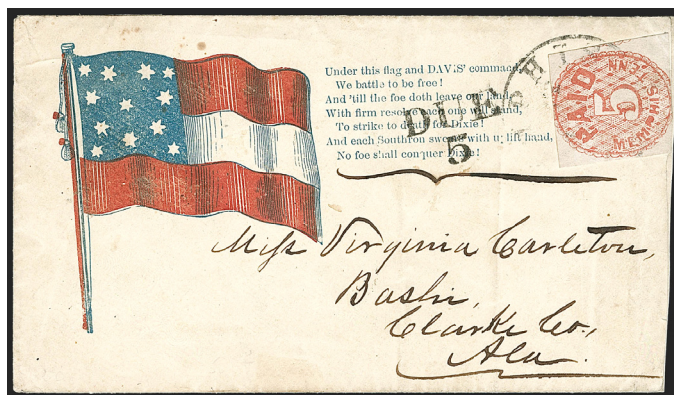 Under this flag and DAVIS' command,
We battle to be free!
And 'till the foe doth leave our land,
With firm resolve each one will stand,
To strike to death for Dixie!
And each Southron swears with uplift hand,
No foe shall conquer Dixie!
DUE
5
PAID
5
MEMPHIS, TENN
Miss Virginia Carleton,
Bashi,
Clarke Co.,
Ala.